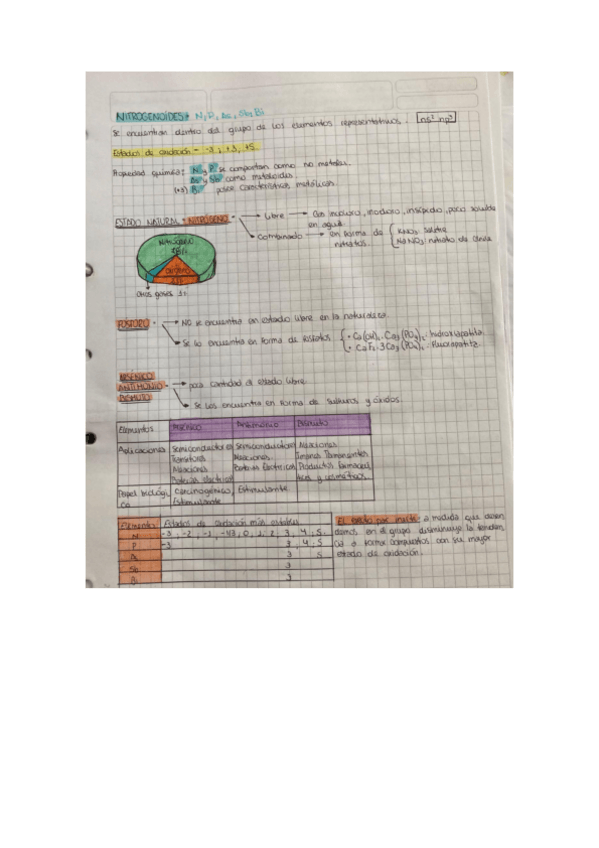 NITROGENOIDES: N, P, As, Sb, Bi
Se encuentran dentro del grupo de los elementos representativos. ns² np³
Estados de oxidación = -3, +3, +5.
Propiedad química: N y P se comportan como no metales.
As y Sb como metaloides.
(+3) Bi posee características metálicas.
ESTADO NATURAL = NITRÓGENO
Libre → Gas incoloro, inodoro, insípido, poco soluble en agua.
Combinado → en forma de nitratos. KNO₃: salitre
NaNO₃: nitrato de
Nitrógeno 78%
Otros gases 1%
FÓSFORO → NO se encuentra en estado libre en la naturaleza.
Se lo encuentra en forma de fosfatos • Ca(OH)₂·Ca₃(PO₄)₂: hidroxiapatita
• CaF₂·3Ca₃(PO₄)₂: fluorapatita.
ARSÉNICO
ANTIMONIO → poca cantidad al estado libre.
BISMUTO
Se los encuentra en forma de sulfuros y óxidos.
Elementos Arsénico Antimonio Bismuto
Aplicaciones Semiconductores Semiconductores Aleaciones
Transitores Aleaciones Imanes Permanentes
Aleaciones Baterías Eléctricas Productos farmacéu
Baterías eléctricas ticos y cosméticos.
Papel biológi Carcinogénico, Estimulante
co Estimulante
Elemento Estados de oxidación más estables
N -3, -2, -1, -1/3, 0, 1, 2, 3, 4, 5.
P -3 3, 4, 5
As 3 5
Sb 3
Bi 3
El efecto par inerte: a medida que descen
demos en el grupo disminuye la tenden
cia a formar compuestos con su mayor
estado de oxidación.